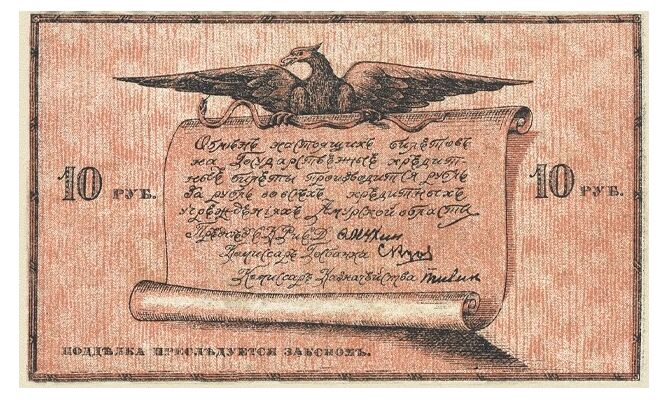 Обмѣнъ настоящихъ билетовъ
на Государственные кредит-
ные билеты производится рубль
за рубль во всѣхъ кредитныхъ
учрежденіяхъ Амурской области
10 РУБ.
10 РУБ.
Комиссаръ Госбанка
Комиссаръ Казначейства
ПОДДѢЛКА ПРЕСЛѢДУЕТСЯ ЗАКОНОМЪ.